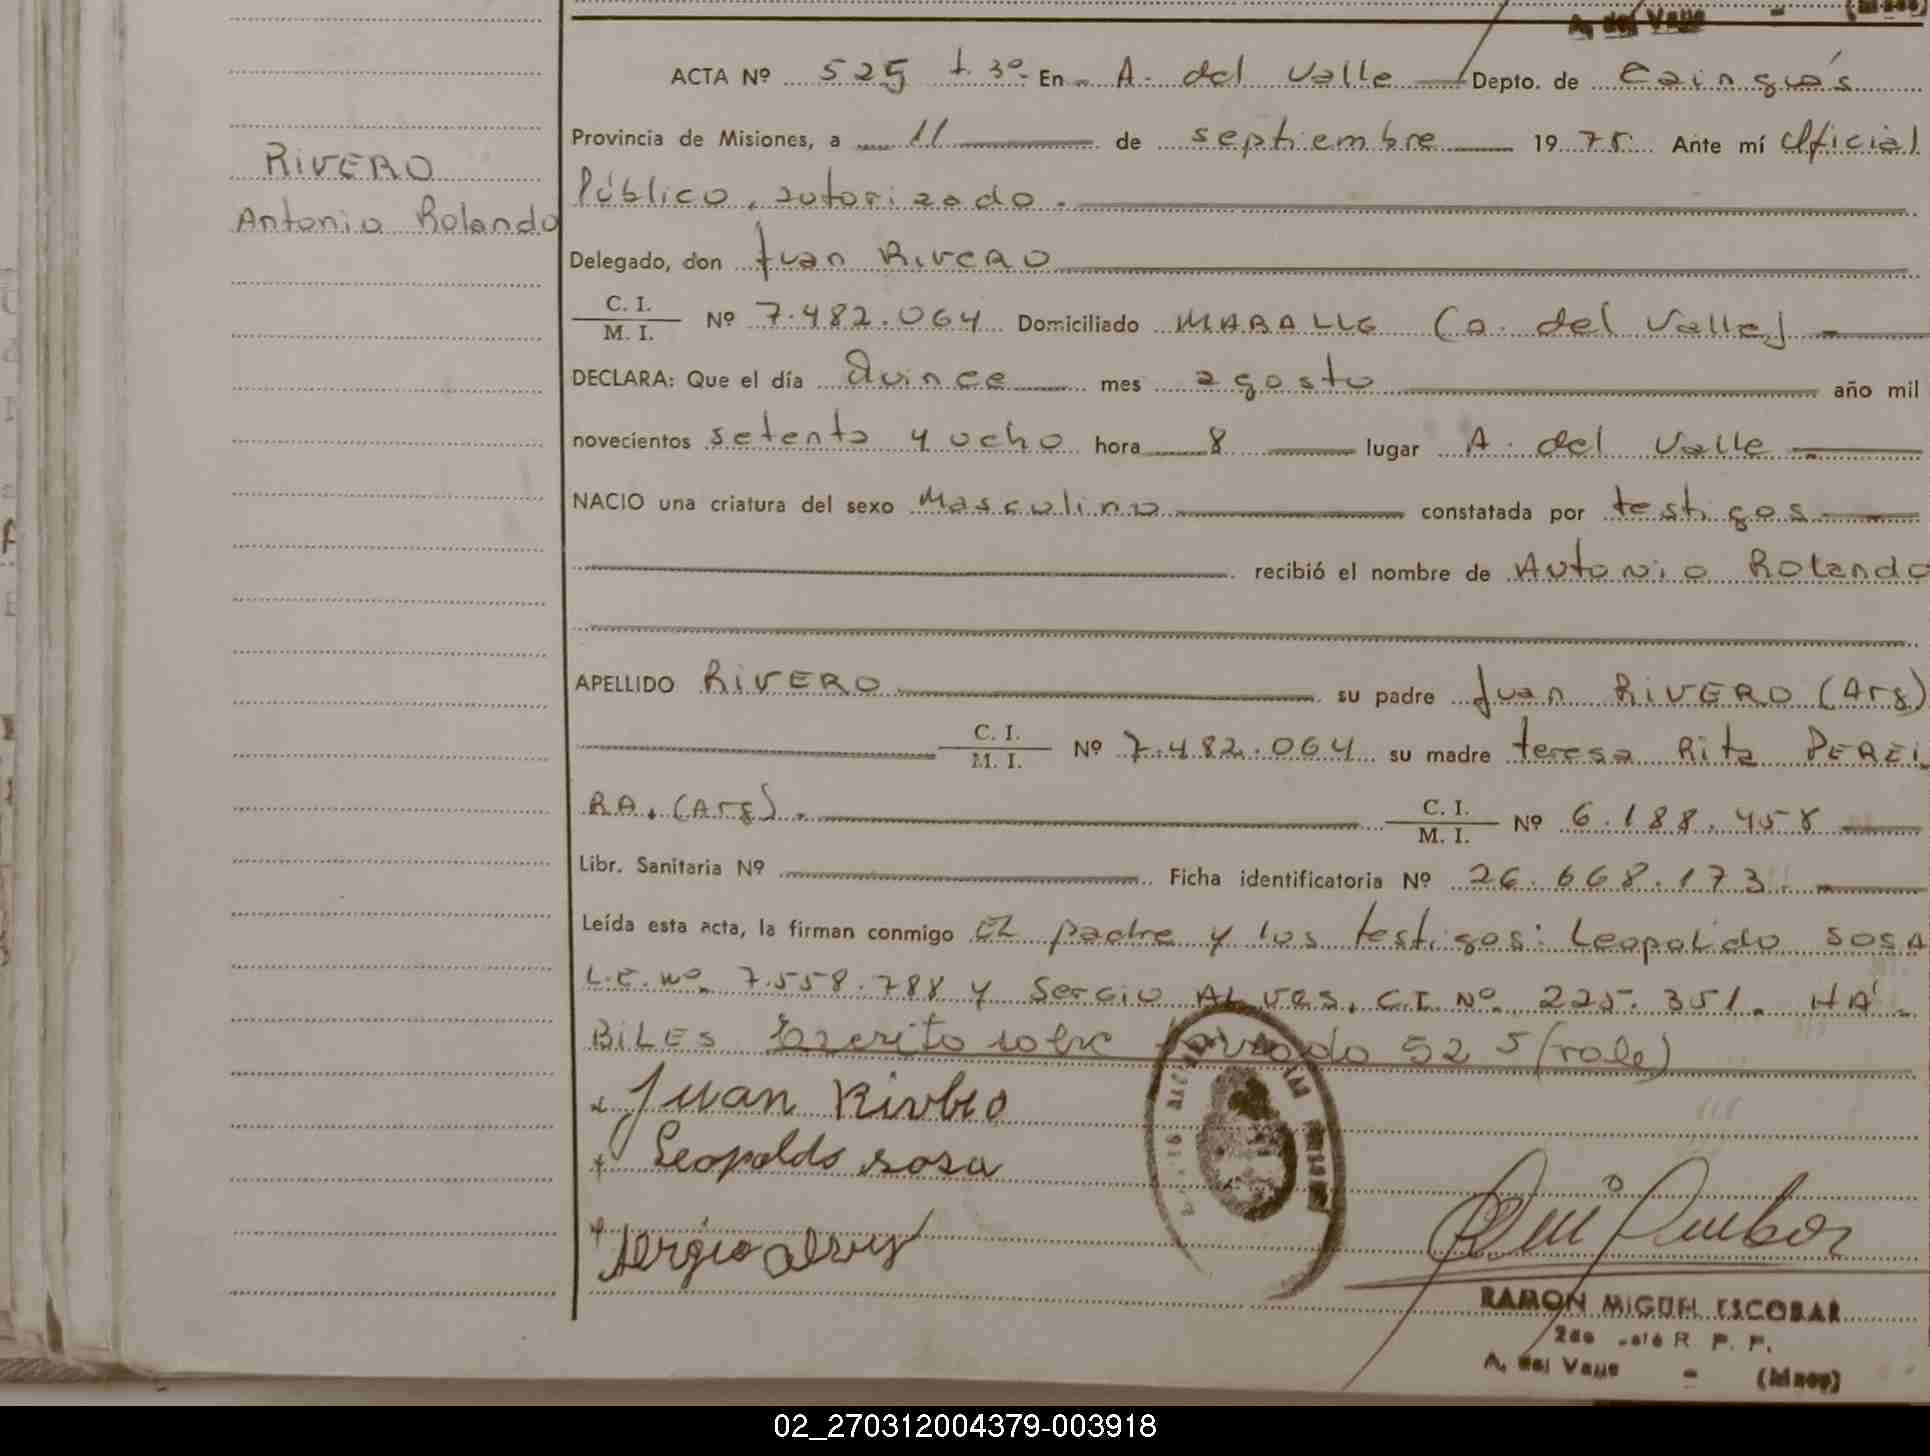 A. del Valle - (Mnes)
ACTA Nº 525 t. 3º. En A. del Valle Depto. de Cainguás
Provincia de Misiones, a 11 de septiembre 1978. Ante mí Oficial
RIVERO
Público, autorizado.
Antonio Rolando
Delegado, don Juan RiveRO
C. I. / M. I. Nº 7.482.064 Domiciliado (a. del Valle)
DECLARA: Que el día Quince mes agosto año mil
novecientos setenta y ocho hora 8 lugar A. del Valle
NACIO una criatura del sexo Masculino constatada por testigos
recibió el nombre de Antonio Rolando
APELLIDO RIVERO su padre Juan RIVERO (Arg)
C. I. / M. I. Nº 7.482.064 su madre teresa Rita PEREI
RA. (Arg). C. I. / M. I. Nº 6.188.458
Libr. Sanitaria Nº Ficha identificatoria Nº 26.668.173.
Leída esta acta, la firman conmigo EL padre y los testigos: Leopoldo SOSA
L.E. Nº. 7.558.788 y Sergio ALVES. C.I. Nº. 225.351. HA
BILES Escrito sobre borrado 525 (vale)
Juan Rivero
Leopoldo sosa
sergio alves
RAMON MIGUEL ESCOBAR
R. P. P.
A. del Valle - (Mnes)
02_270312004379-003918